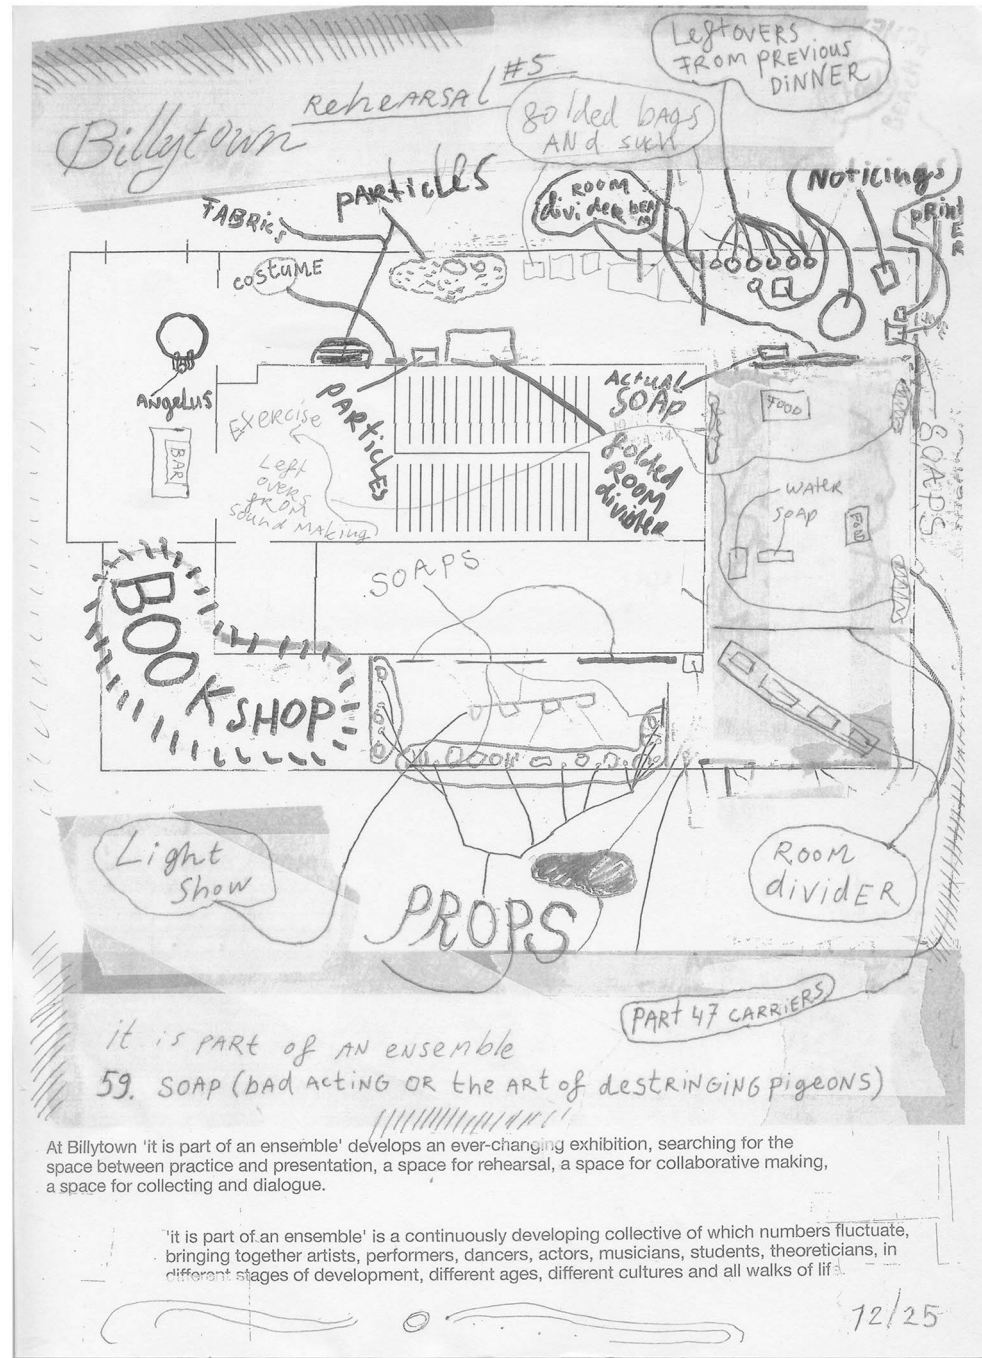 Leftovers
FROM PREVIOUS
DINNER
REHEARSAL #5
Billytown
golded bags
AND such
PARTICLES
FABRICS
ROOM
divider
NOTICINGS
PRINTER
COSTUME
ANGELUS
BAR
Exercise
PARTICLES
ACTUAL
SOAP
FOOD
Left
overs
FROM
Sound making
golded
ROOM
divider
SOAPS
WATER
SOAP
FOOD
SOAPS
BOOKSHOP
Light
Show
PROPS
ROOM
dividER
PART 47 CARRIERS
it is PART of AN ENSEMBLE
59. SOAP (bAd ACTING OR the ART of destRINGING pigeoNS)
At Billytown 'it is part of an ensemble' develops an ever-changing exhibition, searching for the
space between practice and presentation, a space for rehearsal, a space for collaborative making,
a space for collecting and dialogue.
'it is part of an ensemble' is a continuously developing collective of which numbers fluctuate,
bringing together artists, performers, dancers, actors, musicians, students, theoreticians, in
different stages of development, different ages, different cultures and all walks of life.
12/25